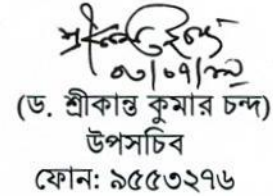 (ড. শ্রীকান্ত কুমার চন্দ)
উপসচিব
ফোন: ৯৫৫৩২৭৬